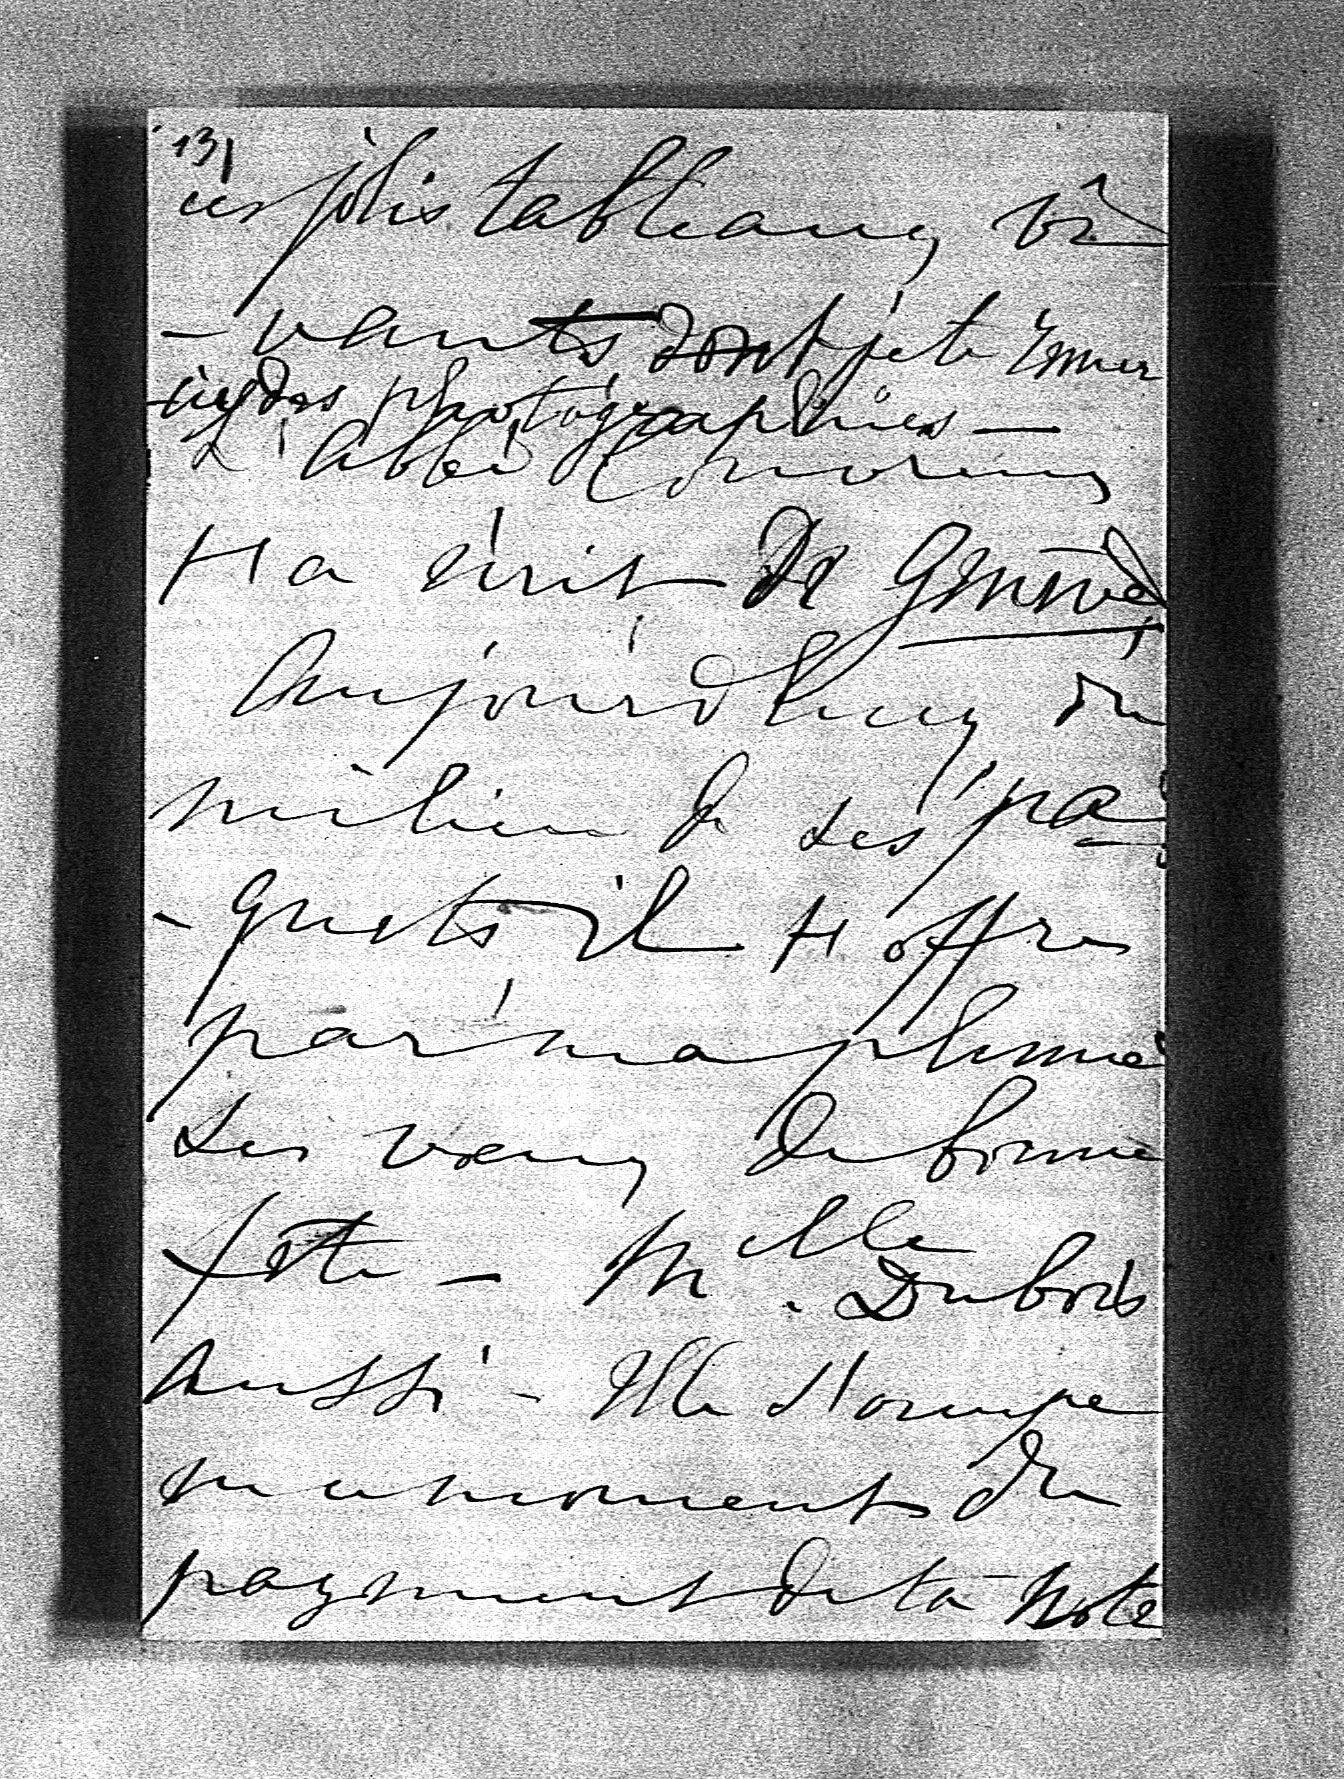 13
ces jolis tableaux vi
- vants dont je te remer
- cie des photographies -
L'Abbé
t'a écrit de Genève,
Aujourd'huy du
milieu de ses pa
- quets il t'offre
par ma plume
ses vœux de bonne
fête - Mlle. Dubois
Aussi - Elle s'occupe
en ce moment du
payment de ta note